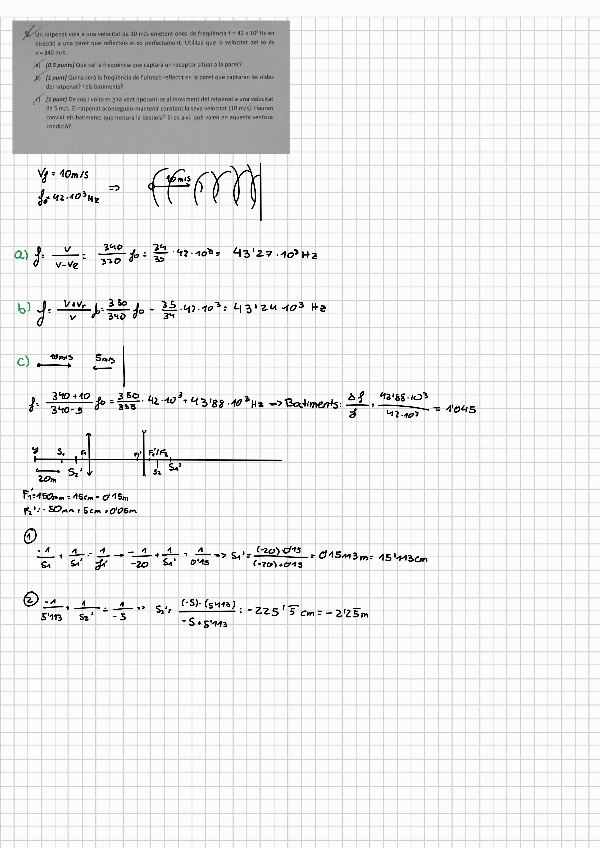 Un ratpenat vola a una velocitat de 10 m/s emetent ones de freqüència f = 42 x 10³ Hz en
direcció a una paret que reflecteix el so perfectament. Utilitza que la velocitat del so és
v = 340 m/s.
a) [0.5 punts] Què val la freqüència que captarà un receptor situat a la paret?
b) [1 punt] Quina serà la freqüència de l'ultrasò reflectit en la paret que captaran les oïdes
del ratpenat? I els batiments?
c) [1 punt] De cop i volta es gira vent oposant-se al moviment del ratpenat a una velocitat
de 5 m/s. El ratpenat aconsegueix mantenir constant la seva velocitat (10 m/s). Hauran
canviat els batiments que mesura la bestiola? Si és així, què valen en aquesta ventosa
condició?
Vf = 10m/s
f₀ = 42·10³Hz =>
10m/s
a) f = V/(V-Vf) = 340/330 f₀ = 34/33 · 42·10³ = 43'27·10³ Hz
b) f = (V+Vr)/V f₀ = 350/340 f₀ = 35/34 · 42·10³ = 43'24·10³ Hz
c) 10m/s 5m/s
f = (340+10)/(340-5) f₀ = 350/335 · 42·10³ = 43'88·10³ Hz => Batiments: Δf/f = 43'88·10³/42·10³ = 1'045
y S₁ F₁ F₁' F₂'/F₂
S₂' S₂ S₁'
20m
F₁' = 150mm = 15cm = 0'15m
F₂' = -50mm = 5cm = 0'05m
① -1/S₁ + 1/S₁' = 1/f' → -1/-20 + 1/S₁' = 1/0'15 => S₁' = (-20)·0'15/((-20)+0'15) = 0'15113m = 15'113cm
② -1/5'113 + 1/S₂' = 1/-5 => S₂' = (-5)·(5'113)/(-5+5'113) = -225'5 cm = -2'25m